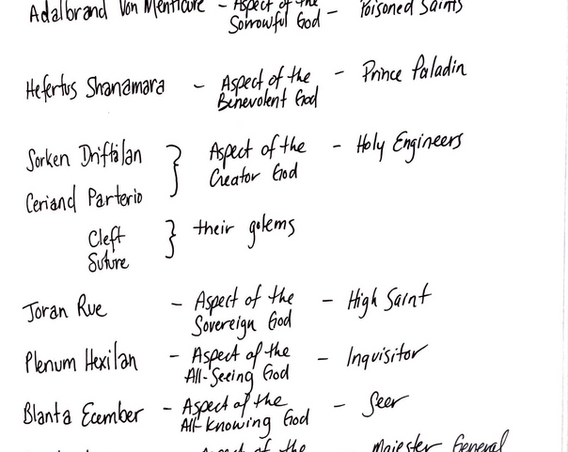 Adalbrand Von Menticure - Aspect of the - Poisoned Saints
Sorrowful God
Hefertus Shanamara - Aspect of the - Prince Paladin
Benevolent God
Sorken Driftalan } Aspect of the - Holy Engineers
Creator God
Ceriand Parterio
Cleft } their golems
Suture
Joran Rue - Aspect of the - High Saint
Sovereign God
Plenum Hexilan - Aspect of the - Inquisitor
All-Seeing God
Blanta Ecember - Aspect of the - Seer
All-Knowing God
Aspect of the Majester General